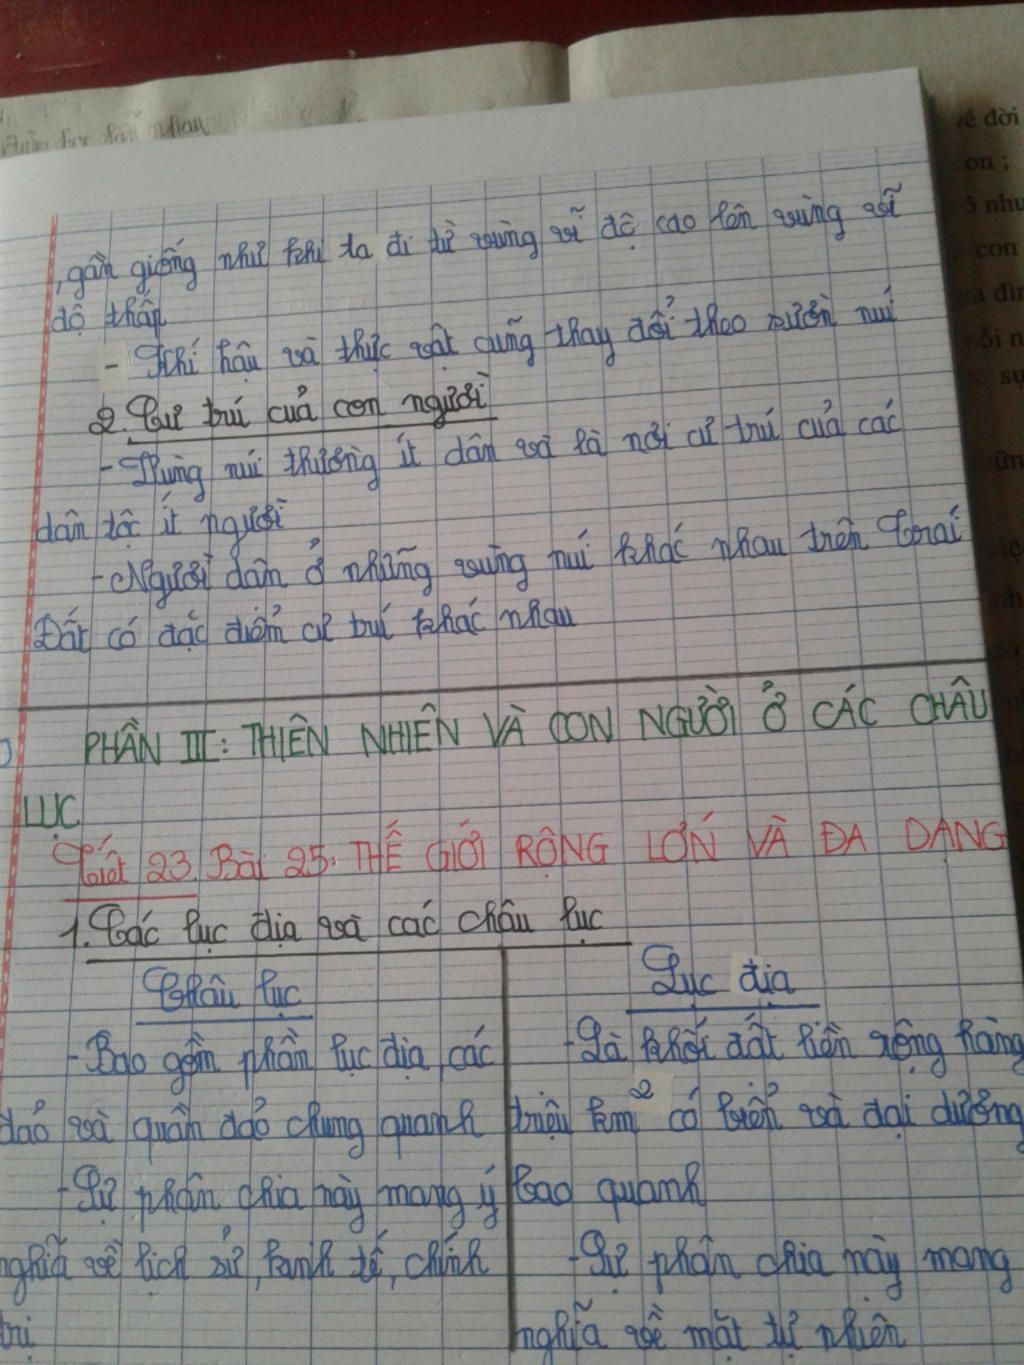 , gần giống như khi ta đi từ vùng vĩ độ cao lên vùng vĩ
độ thấp
- Khí hậu và thực vật cũng thay đổi theo sườn núi
2. Cư trú của con người
- Vùng núi thường ít dân và là nơi cư trú của các
dân tộc ít người
- Người dân ở những vùng núi khác nhau trên Trái
Đất có đặc điểm cư trú khác nhau
PHẦN III: THIÊN NHIÊN VÀ CON NGƯỜI Ở CÁC CHÂU
LỤC
Tiết 23 Bài 25: THẾ GIỚI RỘNG LỚN VÀ ĐA DẠNG
1. Các lục địa và các châu lục
Châu lục
- Bao gồm phần lục địa, các
đảo và quần đảo chung quanh
- Sự phân chia này mang ý
nghĩa về lịch sử, kinh tế, chính
trị
Lục địa
- Là khối đất liền rộng hàng
triệu km² có biển và đại dương
bao quanh
- Sự phân chia này mang
nghĩa về mặt tự nhiên
về đời
con :
5 như
con